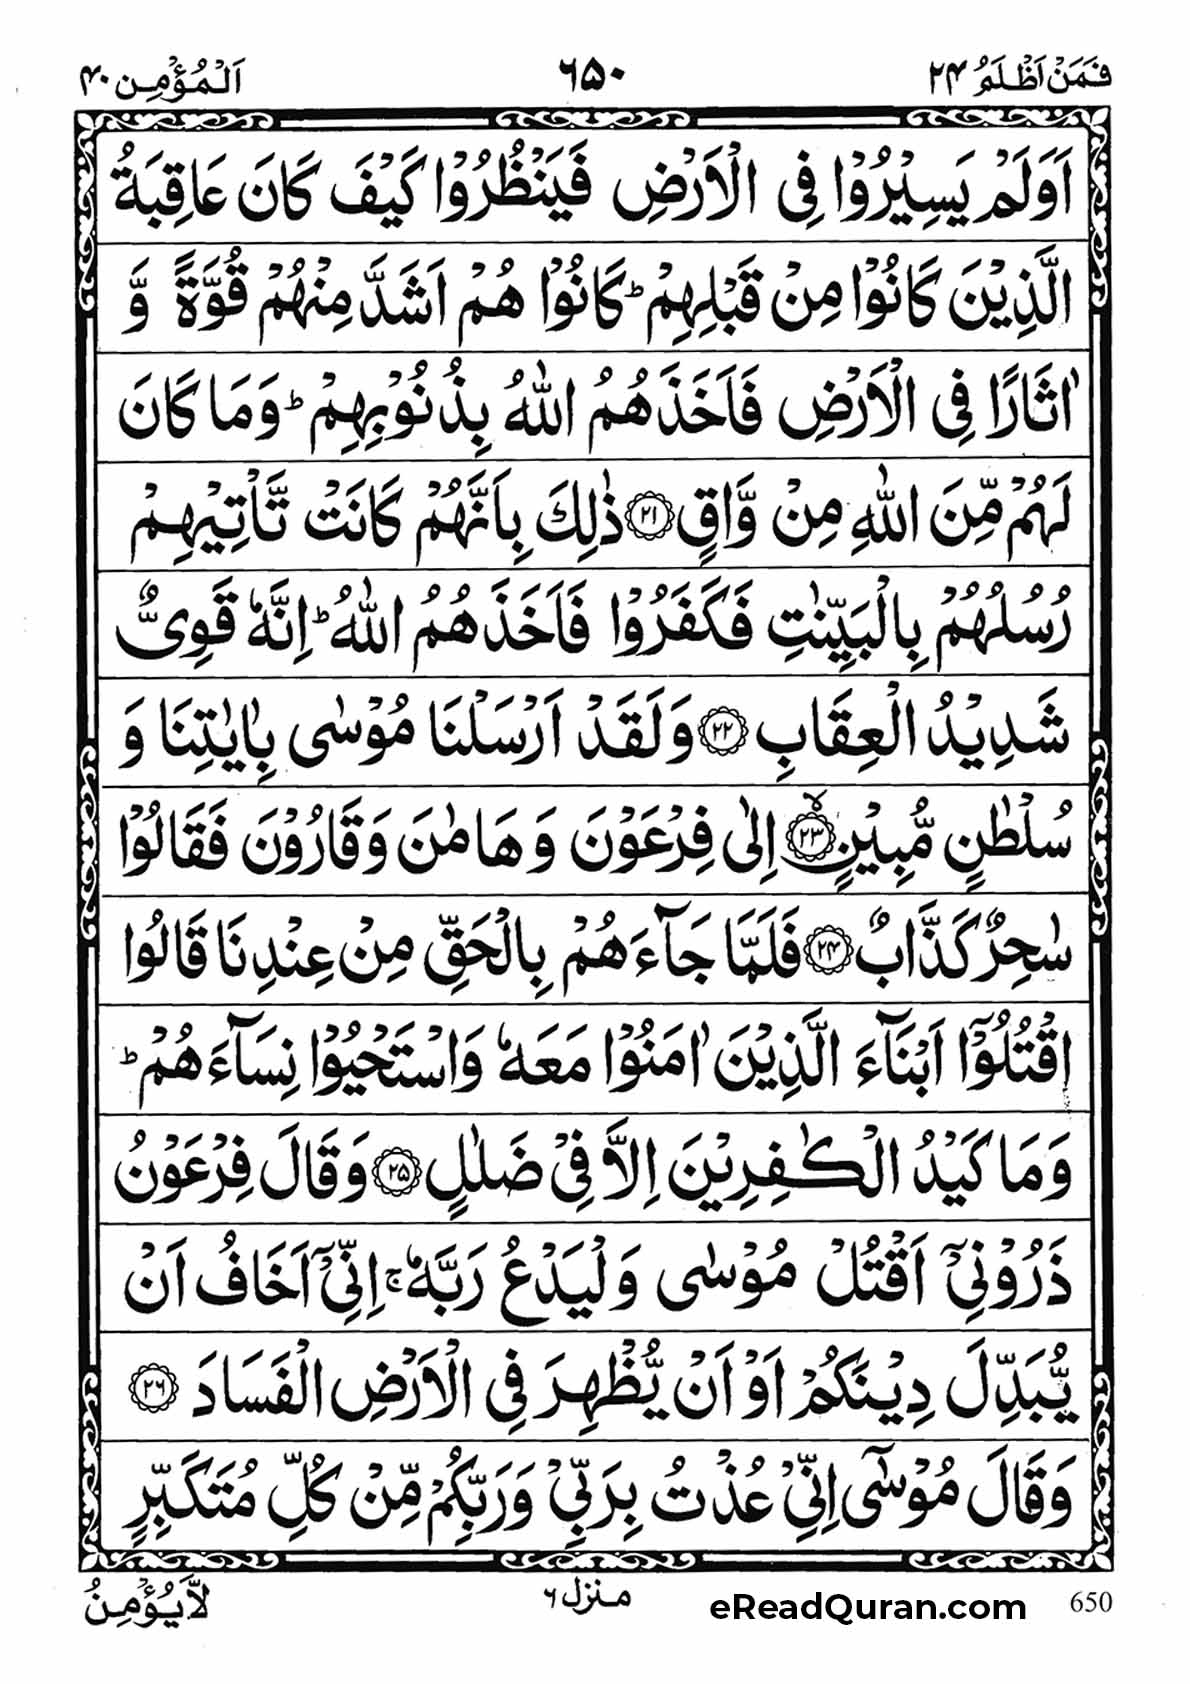 فَمَنْ اَظْلَمُ ۲۴ ۶۵۰ اَلْمُؤْمِن ۴۰
اَوَلَمْ يَسِيْرُوْا فِى الْاَرْضِ فَيَنْظُرُوْا كَيْفَ كَانَ عَاقِبَةُ
الَّذِيْنَ كَانُوْا مِنْ قَبْلِهِمْ ؕ كَانُوْا هُمْ اَشَدَّ مِنْهُمْ قُوَّةً وَّ
اٰثَارًا فِى الْاَرْضِ فَاَخَذَهُمُ اللّٰهُ بِذُنُوْبِهِمْ ؕ وَمَا كَانَ
لَهُمْ مِّنَ اللّٰهِ مِنْ وَّاقٍ ۲۱ ذٰلِكَ بِاَنَّهُمْ كَانَتْ تَّاْتِيْهِمْ
رُسُلُهُمْ بِالْبَيِّنٰتِ فَكَفَرُوْا فَاَخَذَهُمُ اللّٰهُ ؕ اِنَّهٗ قَوِىٌّ
شَدِيْدُ الْعِقَابِ ۲۲ وَلَقَدْ اَرْسَلْنَا مُوْسٰى بِاٰيٰتِنَا وَ
سُلْطٰنٍ مُّبِيْنٍ ۙ ۲۳ اِلٰى فِرْعَوْنَ وَهَامٰنَ وَقَارُوْنَ فَقَالُوْا
سٰحِرٌ كَذَّابٌ ۲۴ فَلَمَّا جَآءَهُمْ بِالْحَقِّ مِنْ عِنْدِنَا قَالُوا
اقْتُلُوْٓا اَبْنَآءَ الَّذِيْنَ اٰمَنُوْا مَعَهٗ وَاسْتَحْيُوْا نِسَآءَهُمْ ؕ
وَمَا كَيْدُ الْكٰفِرِيْنَ اِلَّا فِىْ ضَلٰلٍ ۲۵ وَقَالَ فِرْعَوْنُ
ذَرُوْنِىْٓ اَقْتُلْ مُوْسٰى وَلْيَدْعُ رَبَّهٗ ۚ اِنِّىْٓ اَخَافُ اَنْ
يُّبَدِّلَ دِيْنَكُمْ اَوْ اَنْ يُّظْهِرَ فِى الْاَرْضِ الْفَسَادَ ۲۶
وَقَالَ مُوْسٰٓى اِنِّىْ عُذْتُ بِرَبِّىْ وَرَبِّكُمْ مِّنْ كُلِّ مُتَكَبِّرٍ
لَّا يُؤْمِنُ منزل ۶ eReadQuran.com 650